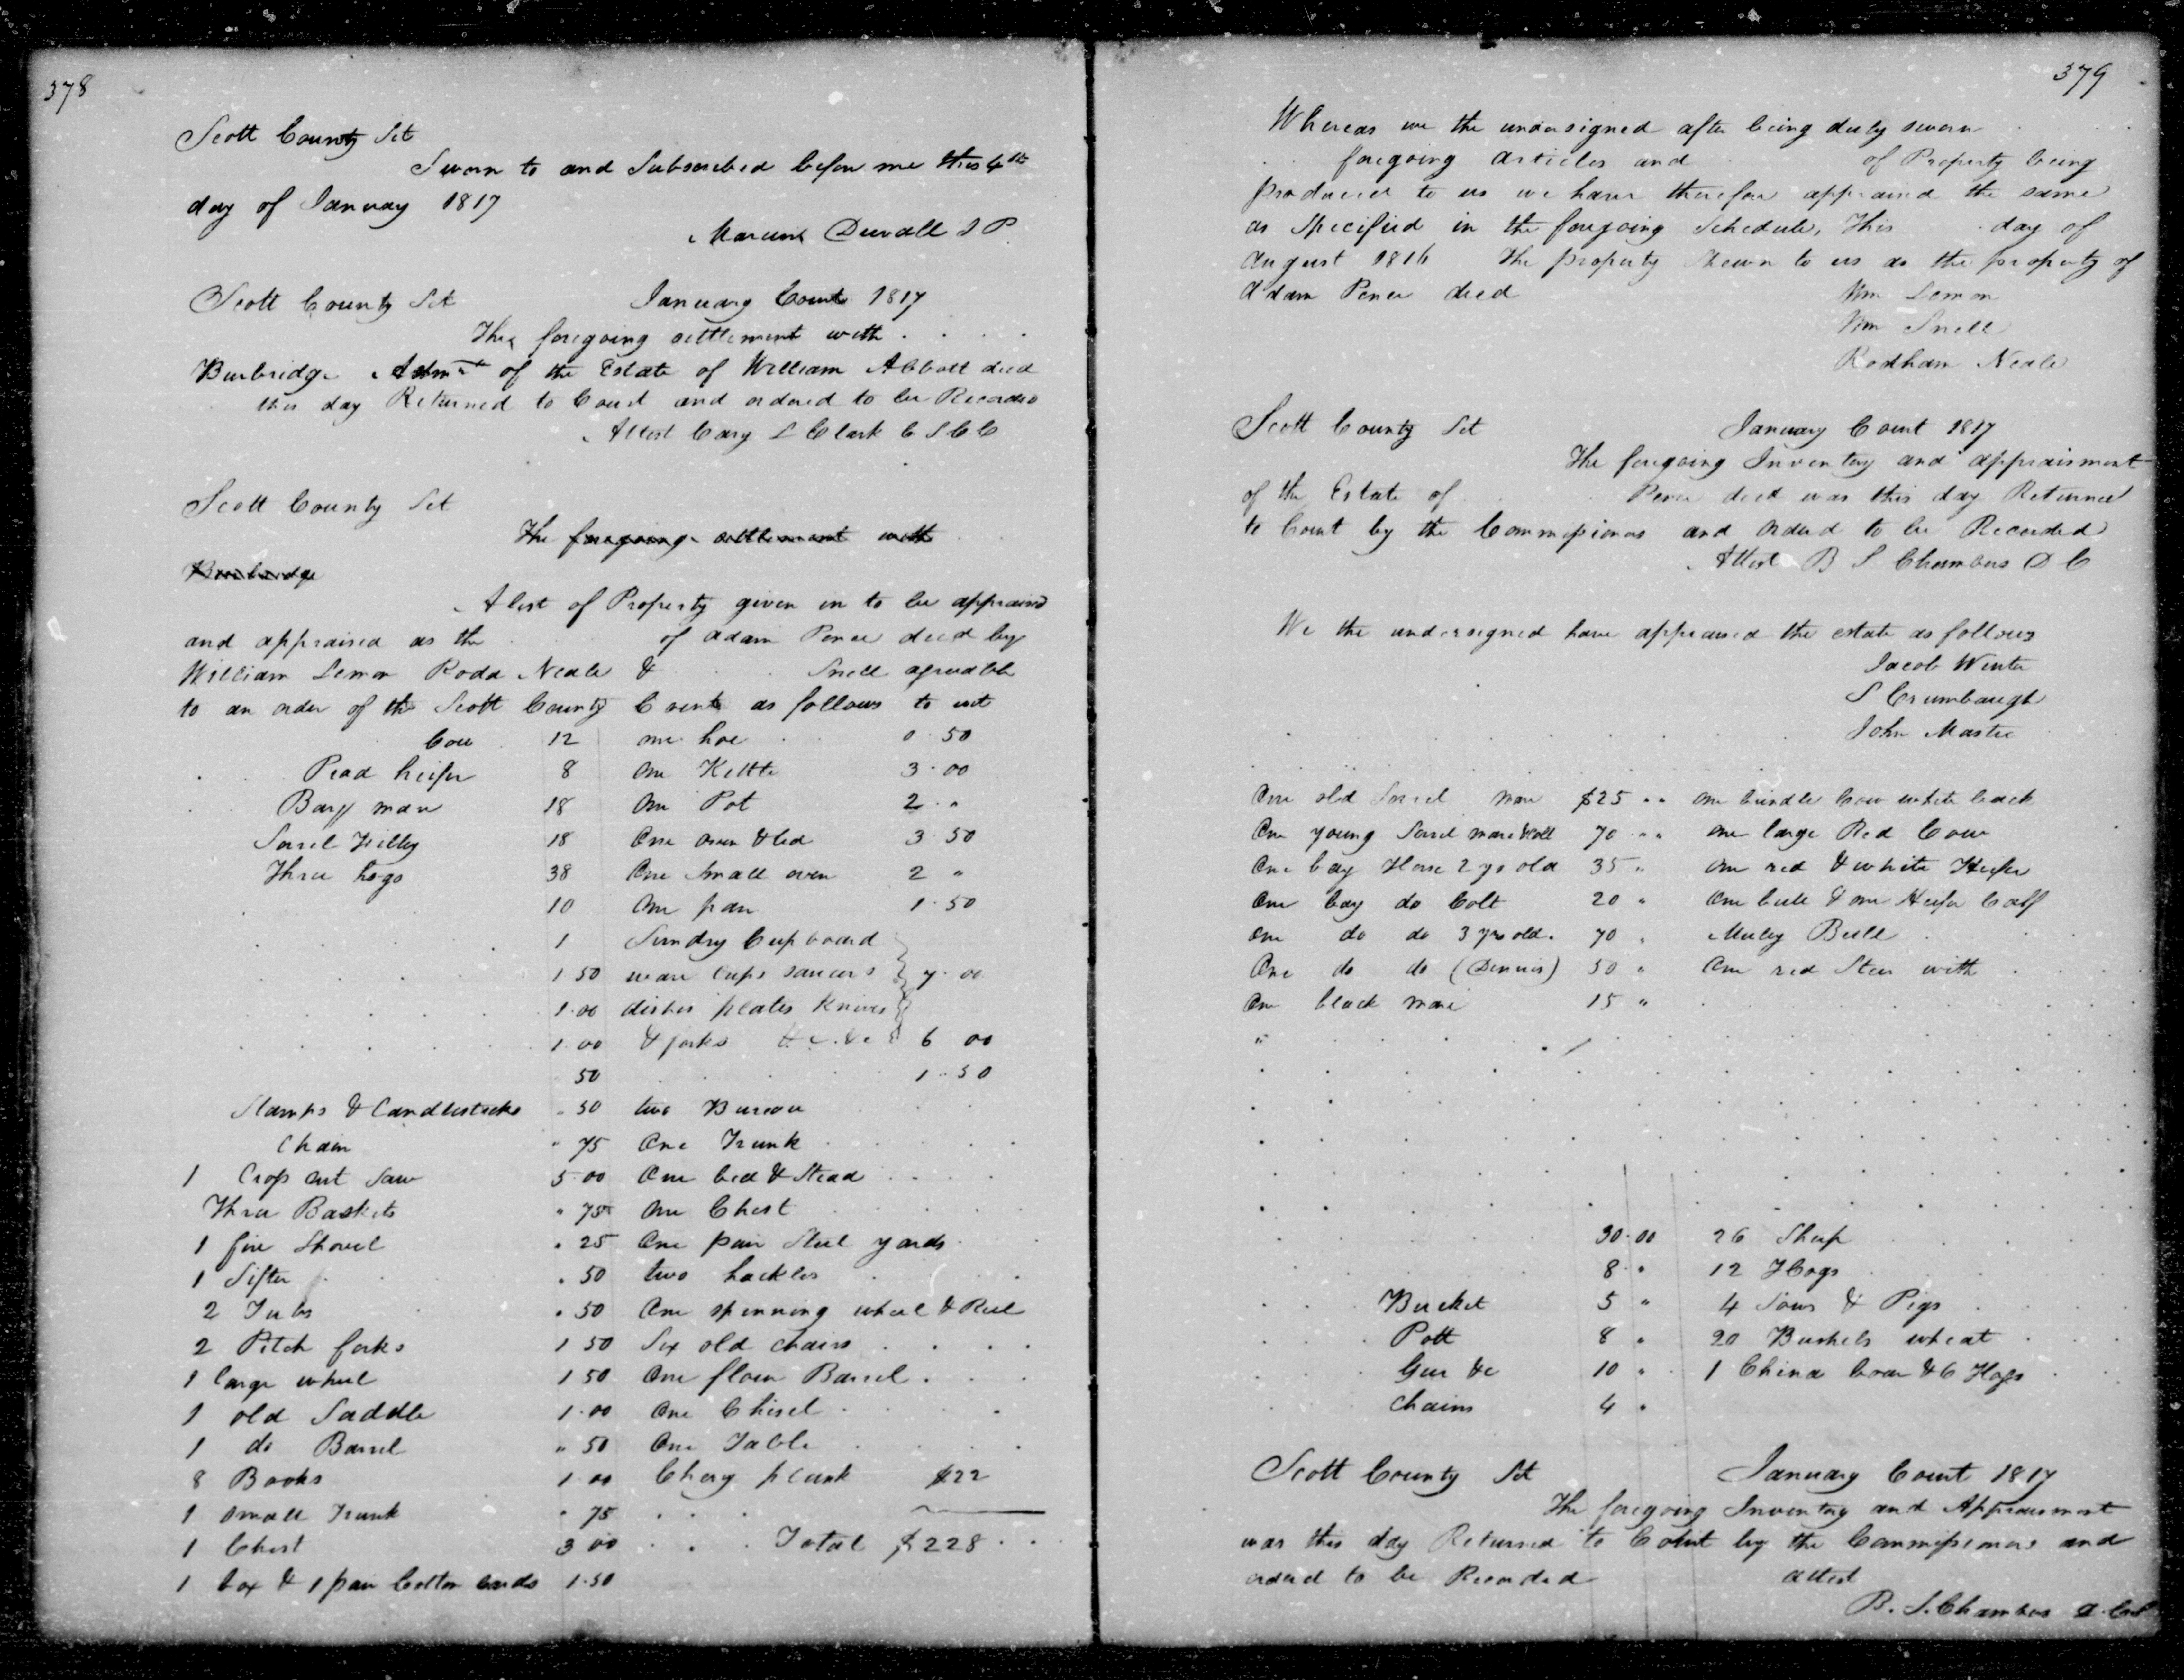 378
Scott County Sct
Sworn to and Subscribed before me this 4th
day of January 1817
Duvall J P
Scott County Sct January Court 1817
The foregoing settlement with . . . .
Burbridge Admr of the Estate of William Abbott decd
this day Returned to Court and ordered to be Recorded
Attest Cary L Clark C S C C
Scott County Sct
The foregoing settlement with
Burbridge
A list of Property given in to be appraisd
and appraised as the . of Adam Pence decd by
William Lemon Rodd Neale & . . Snell agreeable
to an order of the Scott County Court as follows to wit
Cow 12 one hoe . . 0 . 50
heifer 8 One Kettle 3 . 00
Bay mare 18 One Pot 2 . "
Sorrel Filley 18 One oven & led 3 50
Three hogs 38 One Small oven 2 "
10 One pan 1 . 50
1 Sundry Cupboard
1 50 ware Cups saucers 7 . 00
1.00 dishes plates Knives
1.00 & forks &c. &c 6 00
50 1 . 50
Stamps & Candlesticks " 50 two Bureau
Chain " 75 One Trunk
1 Cross cut Saw 5.00 One bed & Stead
Three Baskets " 75 One Chest
1 fire Shovel " 25 One pair Steel yards
1 Sifter " 50 two hackles
2 Tubs " 50 One spinning wheel & Reel
2 Pitch forks 1 50 Six old chairs
1 large wheel 1 50 One flour Barrel
1 old Saddle 1.00 One Chisel
1 do Barrel " 50 One Table
8 Books 1 00 Chery plank $22
1 small Trunk " 75
1 Chest 3 00 Total $228
1 box & 1 pair Cotton Cards 1.50
379
Whereas we the undersigned after being duly sworn
foregoing articles and of Property being
produced to us we have therefore appraised the same
as Specified in the foregoing Schedule, This . day of
August 1816 The property shewn to us as the property of
Adam Pence decd Wm Lemon
Wm Snell
Rodham Neale
Scott County Sct January Court 1817
The foregoing Inventory and appraisment
of the Estate of Pence decd was this day Returned
to Court by the Commissioners and ordered to be Recorded
Attest B S Chambers D C
We the undersigned have appraised the estate as follows
Jacob Winter
S Crumbaugh
John Master
One old Sorrel mare $25 " " One brindle Cow white back
One young Sorrel mare & Colt 70 " " one large Red Cow
One bay Horse 2 yrs old 35 " One red & white Heifer
One bay do Colt 20 " One bull & one Heifer Calf
One do do 3 yrs old. 70 " Muley Bull
One do do (Dennis) 50 " One red Steer with
One black mare 15 "
"
30.00 26 Sheep
8 " 12 Hogs
Bucket 5 " 4 Sows & Pigs
Pott 8 " 20 Bushels wheat
Gear &c 10 " 1 China boar & 6 Hogs
Chains 4 "
Scott County Sct January Court 1817
The foregoing Inventory and Appraisment
was this day Returned to Court by the Commissioners and
ordered to be Recorded attest
B. S. Chambers